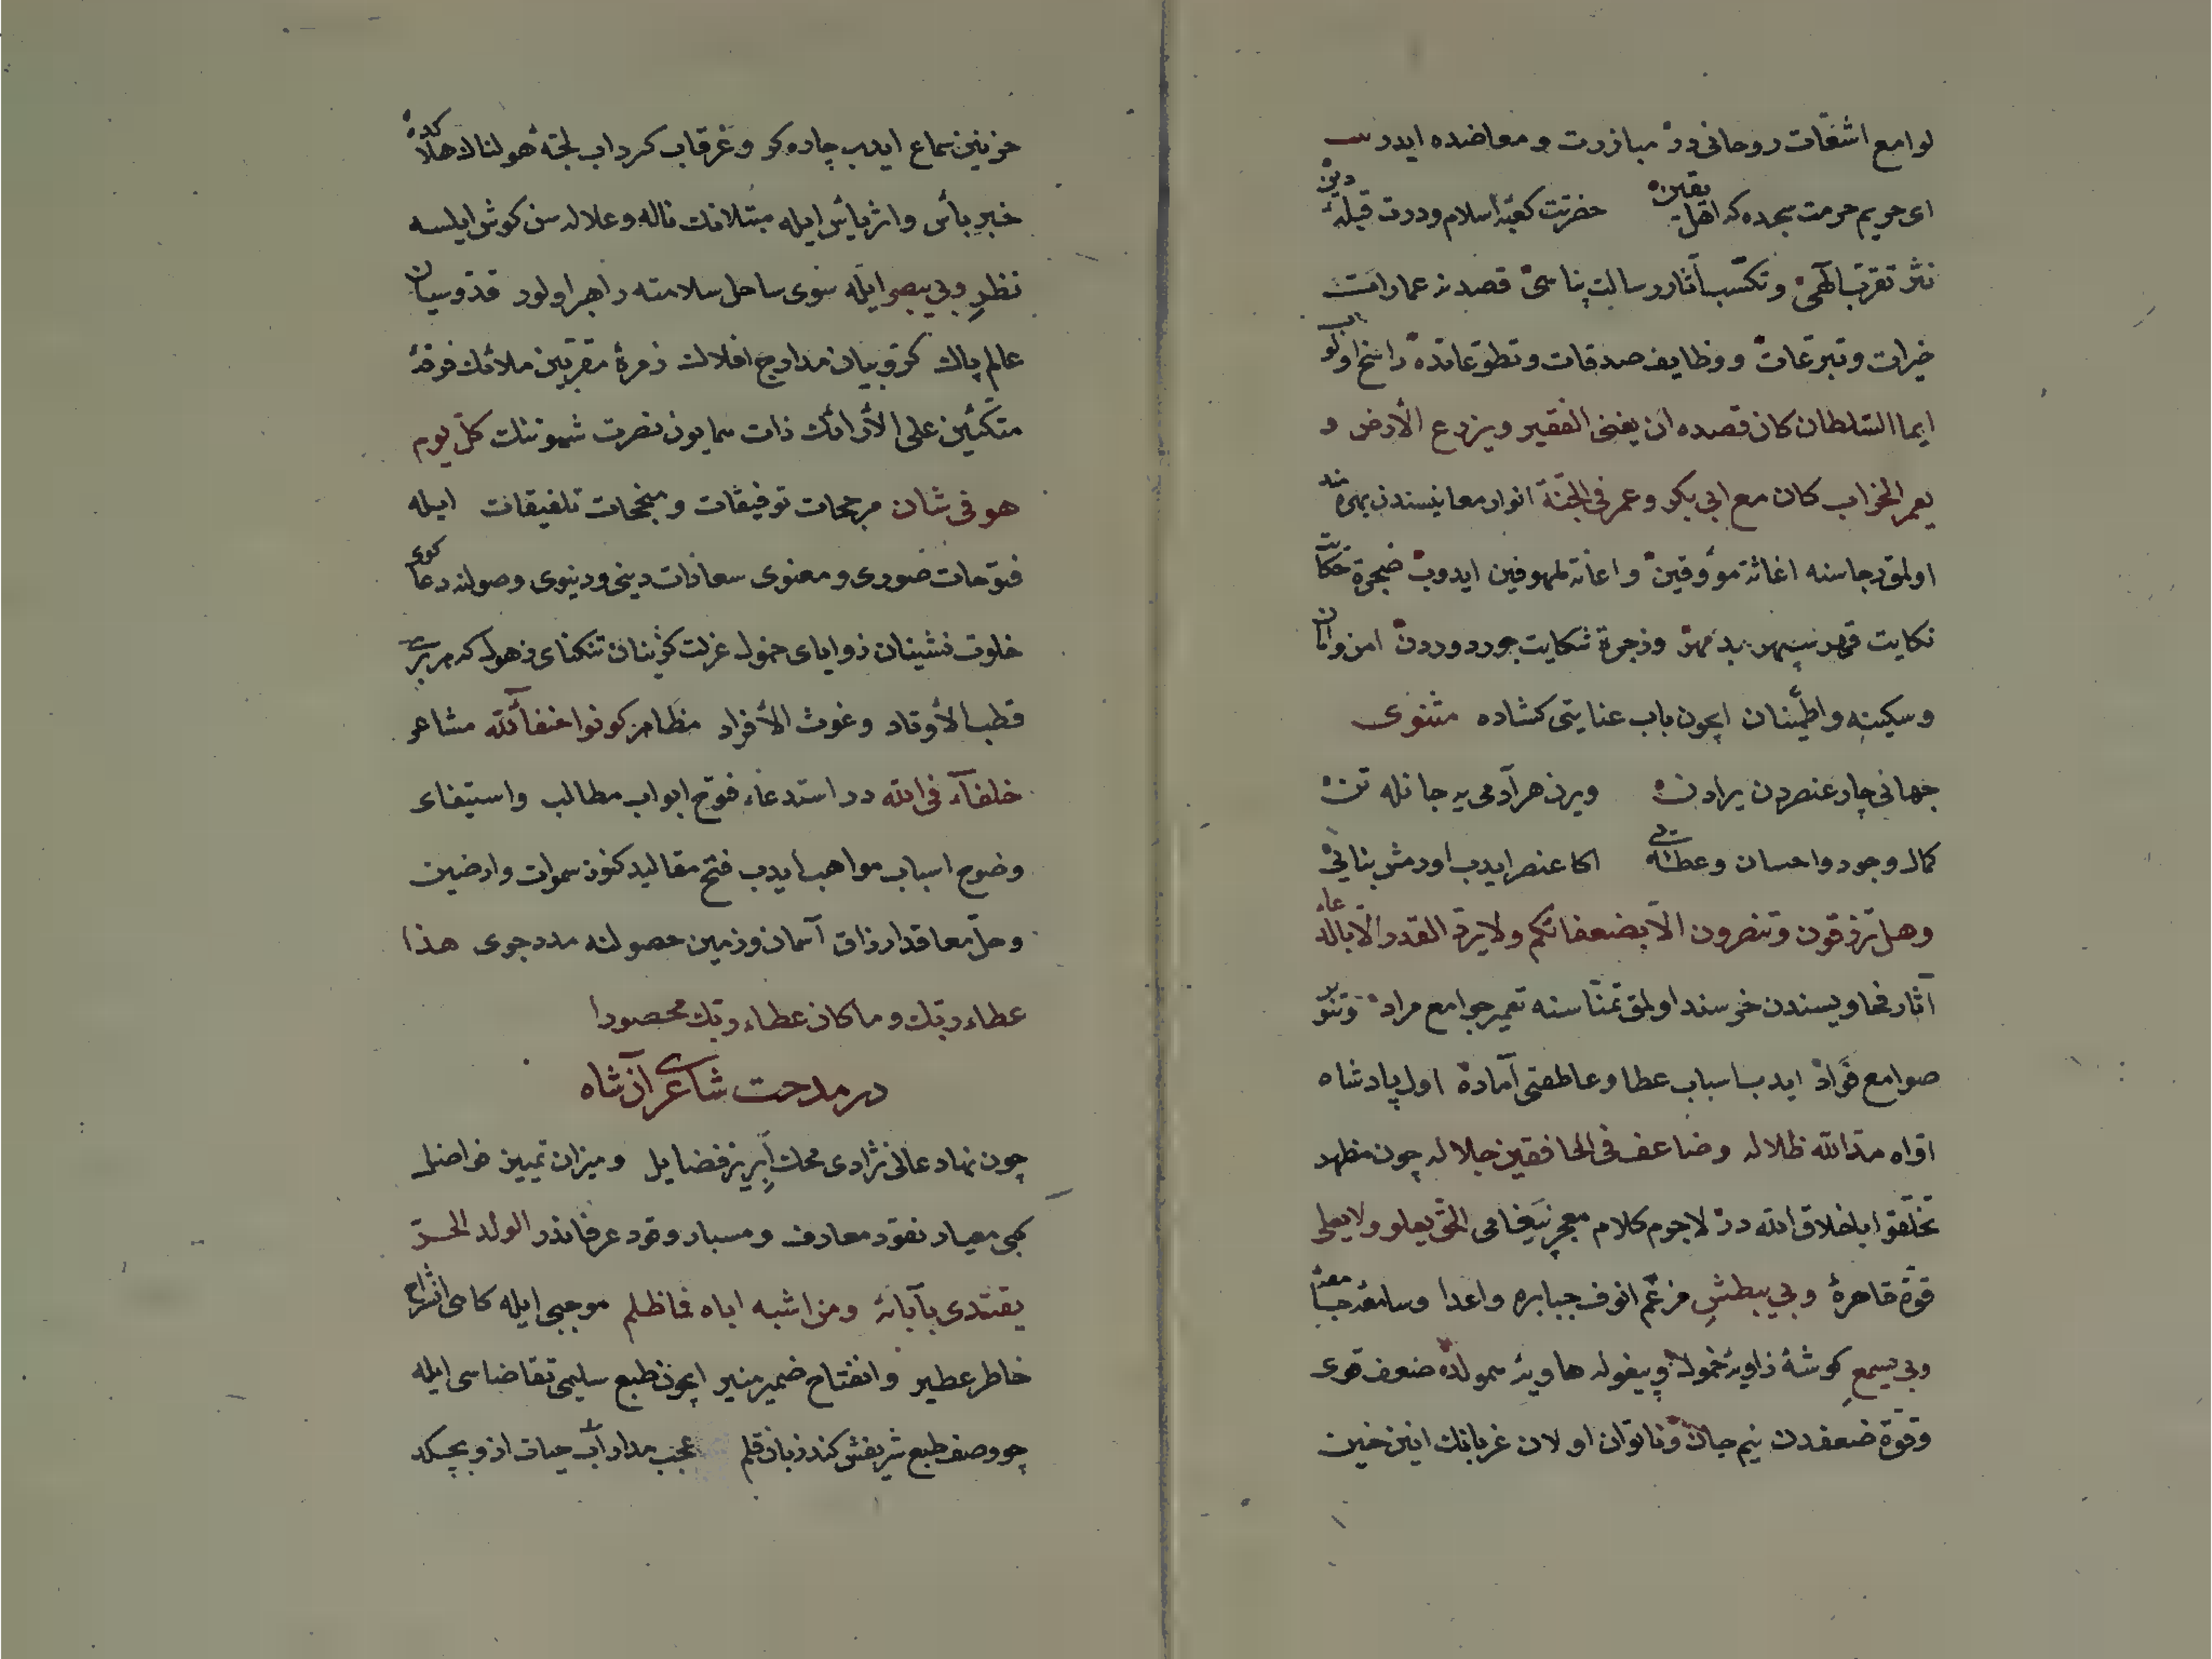 لوامع اشفاقات روحانی در مبازرت و معاضده ایدر
ای حریم حرمت سجده که اهل یقین حضرتت کعبۀ اسلام و درت قبلۀ دین
نثر تقرّب آلهی و تکسّب آثار رسالت پناهی قصدنه عمارات
خیرات و تبرعات و وظایف صدقات و تطوعاتده راسخ اولوب
ایما السّلطان کان قصده ان یغنی الفقیر و یزرع الأرض و
یعمر الخراب کان مع ابی بکر و عمر فی الجنّة انوار معانیسندن بهره مند
اولمق رجاسنه اغاثۀ مؤوقین و اعانۀ ملهوفین ایدوب ضجرۀ حکایت
نکایت قهر سپهر بد مهر و زجرۀ شکایت جور دوردن امن و امان
و سکینه و اطمینان ایچون باب عنایتی کشاده مثنوی
جهانی چار عنصردن یرادن ویرن هر آدمی یه جانله تن
کمال وجود و احسان و عطائی اکا عنصر ایدب اورمش بنایی
وهل ترزقون وتنصرون الّا بضعفائکم ولا یردّ القدر الّا بالدعاء
آثار فحاویسندن خرسند اولمق تمنّاسنه تعمیر جوامع مراد و تنویر
صوامع فؤاد ایدب اسباب عطا و عاطفتی آماده اول پادشاه
اوّاه مدّ الله ظلاله وضاعف فی الخافقین جلاله چون مظهر
تخلّقوا باخلاق الله در لاجرم کلام معجز پیغامی الحق یعلو ولا یعلی
قوّۀ قاهرۀ وبی یبطش مرغم انوف جبابره و اعدا و سامعۀ
وبی یسمع کوشۀ زاویۀ خمولده و پیغولۀ هاویۀ سمولده ضعف قوی
و قوّۀ ضعفدن نیم جان و ناتوان اولان غربانک انین
حزنین سماع ایدب چاره کر و غرقاب کرداب لجّۀ هولناک
خبر بأس و اثر یأس ایله مبتلانک ناله و علاله سن کوش ایلسه
نظر وبی یبصر ایله سوی ساحل سلامته راهبر اولور قدّوسیان
عالم پاک کرّوبیان مدارج افلاک زمرۀ مقرّبین ملائک فرقۀ
متکئین علی الأرائک ذات همایون نصرت شمونک کلّ یوم
هو فی شان مرجحات توفیقات و منجحات تلفیقات ایله
فتوحات صوری و معنوی سعادات دینی و دنیوی وصولنه دعا کوی
خلوت نشینان زوایای خمول عزلت کزینان تنکنای ذهول که هر بری
قطب الأوتاد و غوث الأفراد مظاهر کونوا حنفاء لله مشاعر
خلفاء فی الله در استدعاء فتوح ابواب مطالب و استیفای
وضوح اسباب مواهب ایدب فتح مقالید کنوز سموات و ارضین
و حلّ معاقد ارزاق آسمان و زمین حصولنه مدد جوی هذا
عطاء ربّك وما كان عطاء ربّك محصورا
در مدحت شاعری آن شاه
چون نهاد عالی نژادی محک ابریز فضایل و میزان تمییز فواضل
کبی معیار نقود معارف و مسبار وقود عرفاندر الولد الحرّ
یقتدی بآبائه ومن اشبه اباه فما ظلم موجبی ایله کاهی انشراح
خاطر عطیر و انفتاح ضمیر منیر ایچون طبع سلیمی تقاضاسی ایله
چو وصف طبع شریفش کند زبان قلم عجب مدار آب حیات ازو بچکد